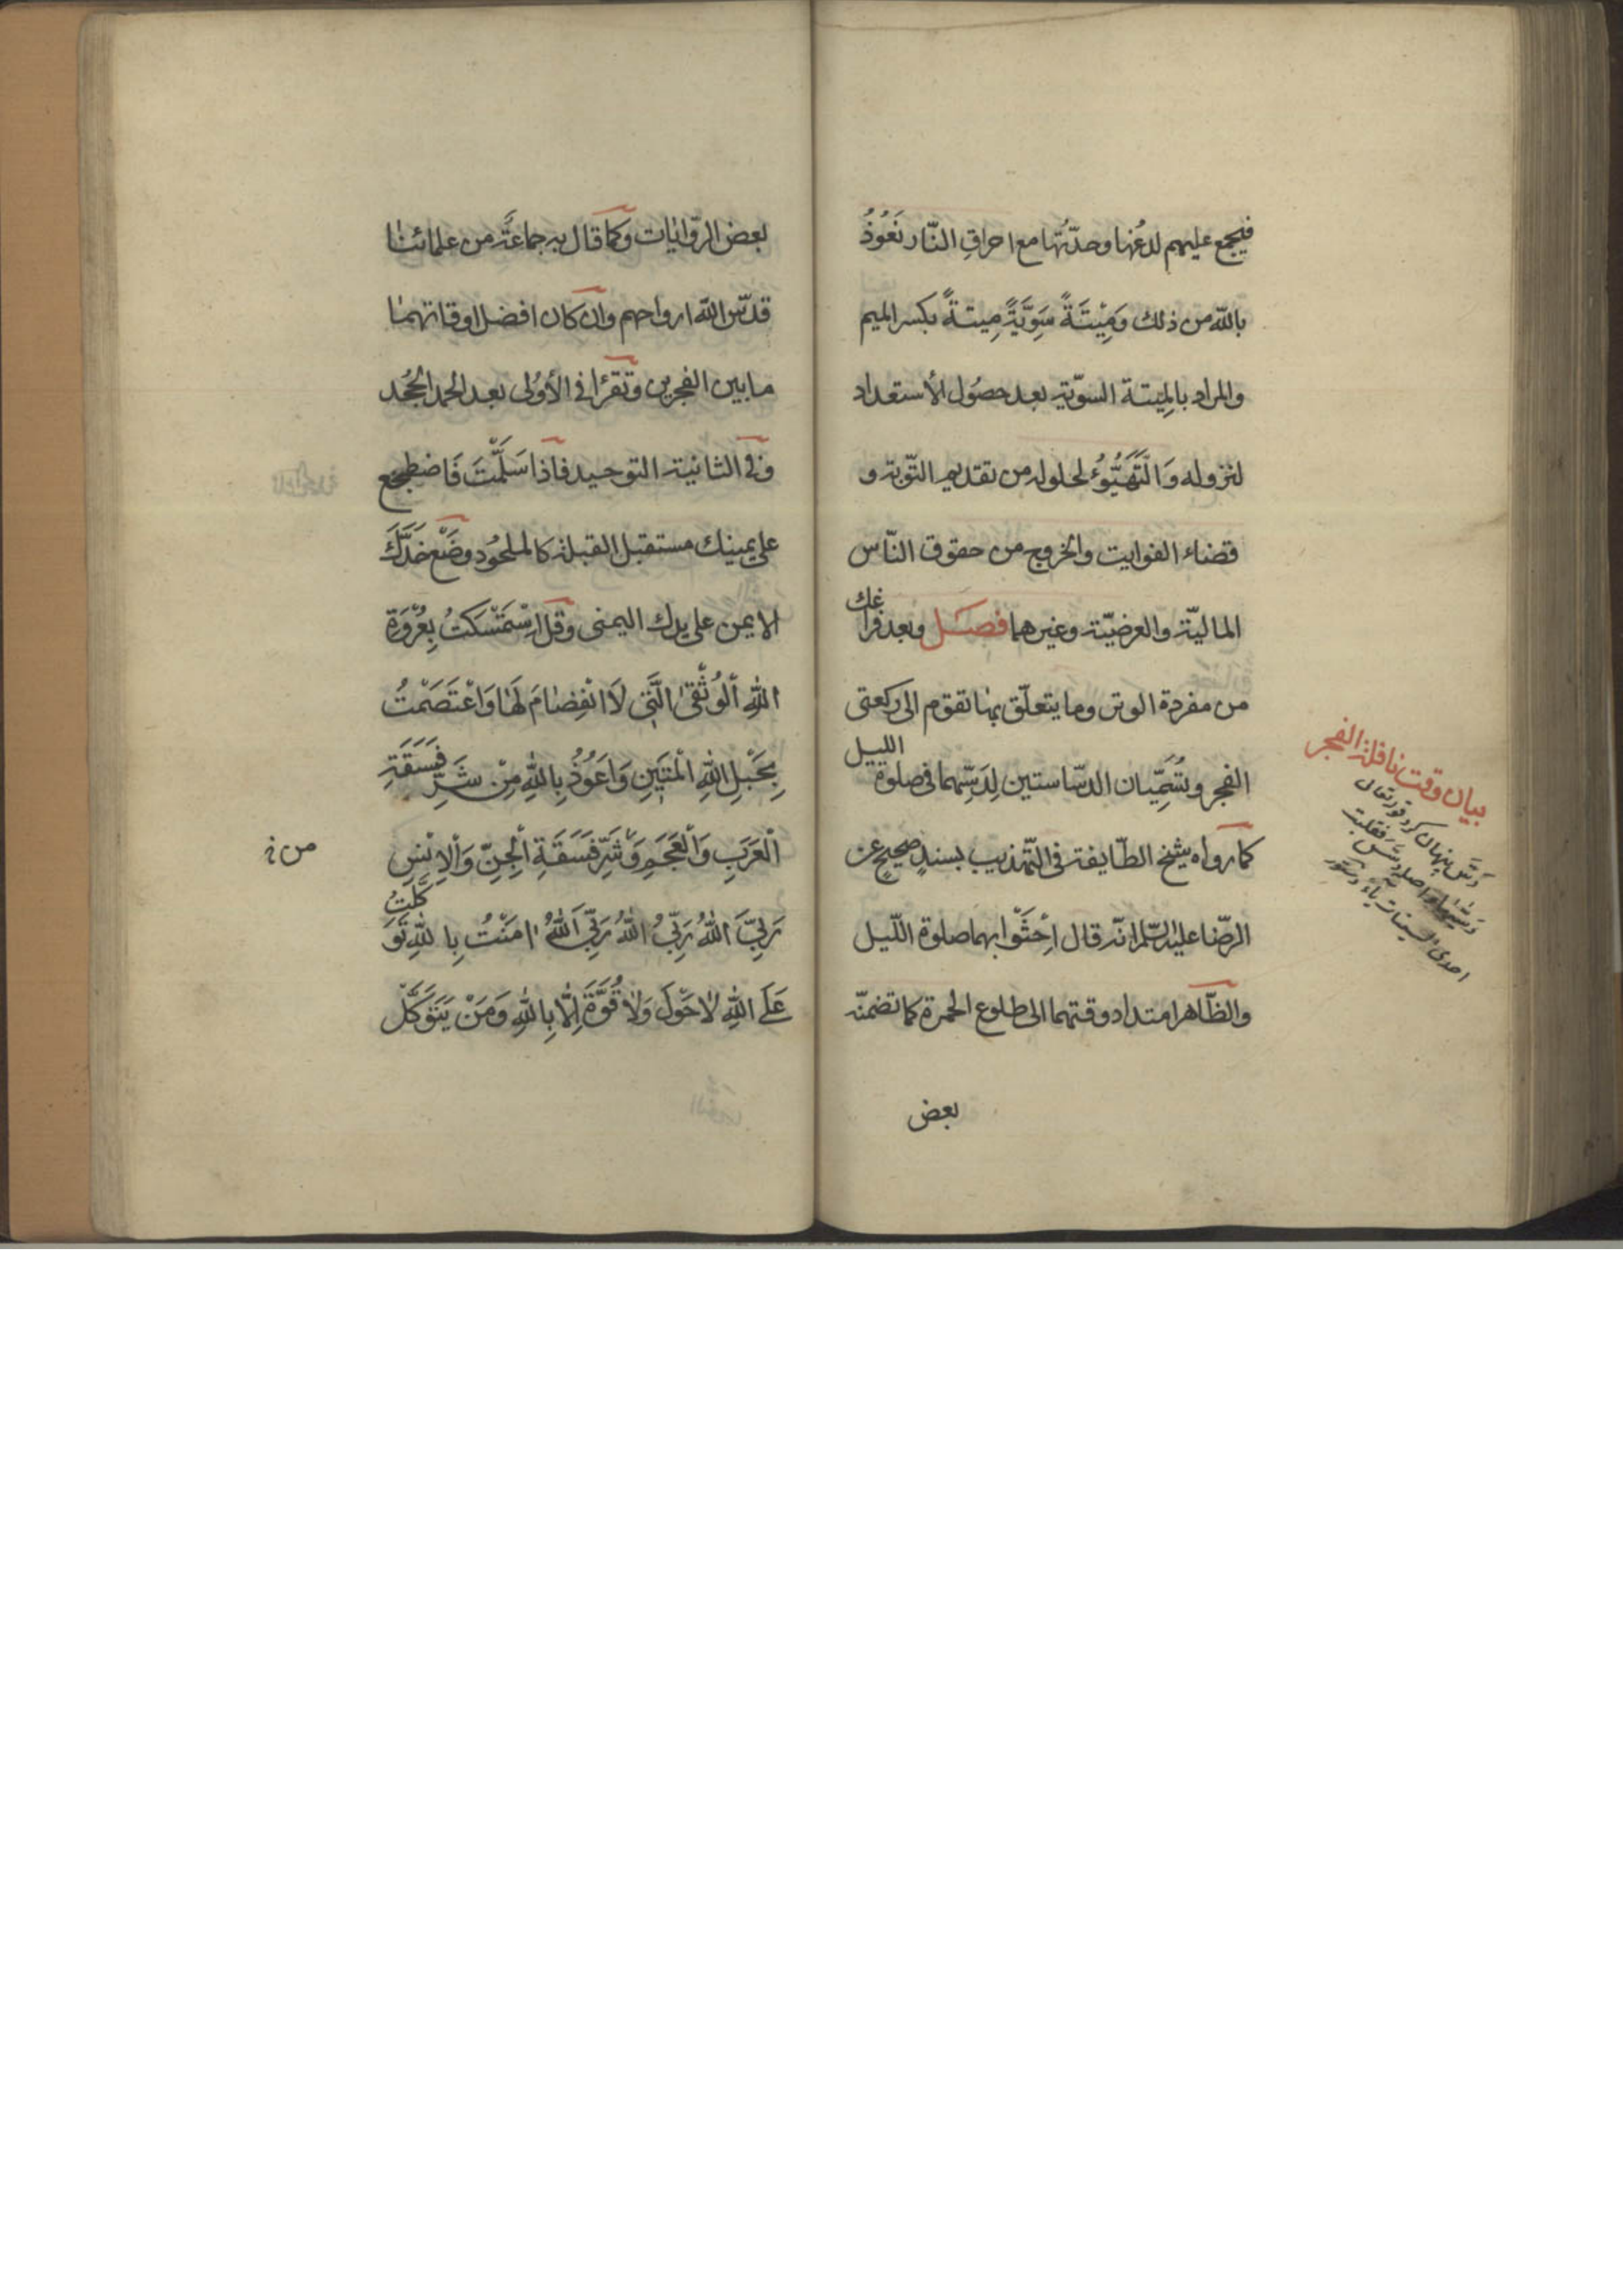 فيجمع عليهم لدغها وحدّتها مع احراق النّار نَعُوذُ
بالله من ذلك وَمِيْتَةً سَوِيَّةً مِيتةً بكسر الميم
والمراد بالمِيتة السويّة بعد حصُول الأستعداد
لنزوله وَالتَّهَيُّؤُ لحلوله من تقديم التّوبة و
قضاء الفوايت والخروج من حقوق النّاس
الماليّة والعرضيّة وغيرهما فصل وبعد فراغك
من مفردة الوتر وما يتعلّق بها تقوم الى ركعتى
الفجر وتُسَمِّيان الدسّاستين لِدَسِّهما فى صلوة الليل
كما رواه شيخ الطّايفة فى التّهذيب بسندٍ صحيحٍ عن
الرضّا عليه السّلم انّه قال اُحْشُوا بهما صلوة اللّيل
والظّاهر امتداد وقتهما الى طلوع الحمرة كما تضمنّه
بعض
بيان وقت نافلة الفجر
دَسَّ پنهان كرد قوله تعالى
دسّٰيها اصله دسّس فقلبت
احدى السينات ياءً
بعض الرّوايٰات وكما قال به جماعَةٌ من علمائنٰا
قدّس الله ارواحهم وان كان افضل اوقاتهمٰا
ما بين الفجرين وتقرَٔا فى الأوُلى بعد الحمد الجُحد
وفى الثانية التوحيد فاذا سَلَّمْتَ فَاضطجع
على يمينك مستقبل القبلة كالملحُود وضَعْ خَدَّكَ
الايمن على يدك اليمنى وقل اِسْتَمْسَكتُ بِعُرْوَةِ
اللهِ ألوُثْقىٰ الَّتى لَا انْفِضٰامَ لَهٰا وَاعْتَصَمْتُ
بِحَبْلِ اللهِ الْمَتينِ وَاَعوُذُ بِاللهِ مِنْ شَرِّ فَسَقَةِ
الْعَرَبِ وَالْعَجَمِ وَشَرِّ فَسَقَةِ الْجِنِّ وَالْاِنْسِ
من
رَبِّىَ اللهُ رَبِّىَ اللهُ رَبِّىَ اَللهُ اٰمَنْتُ بِاللهِ تَوَكَّلْتُ
عَلَى اللهِ لاٰحَوْلَ وَلاٰ قُوَّةَ اِلّٰا بِاللهِ وَمَنْ يَتَوَكَّلْ